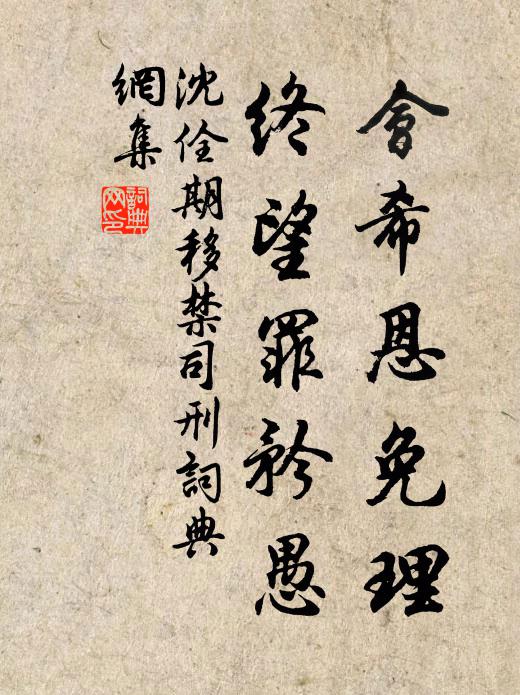 會希恩免理
終望罪矜愚
沈佺期移禁司刑詞典
網集
詞典
网印